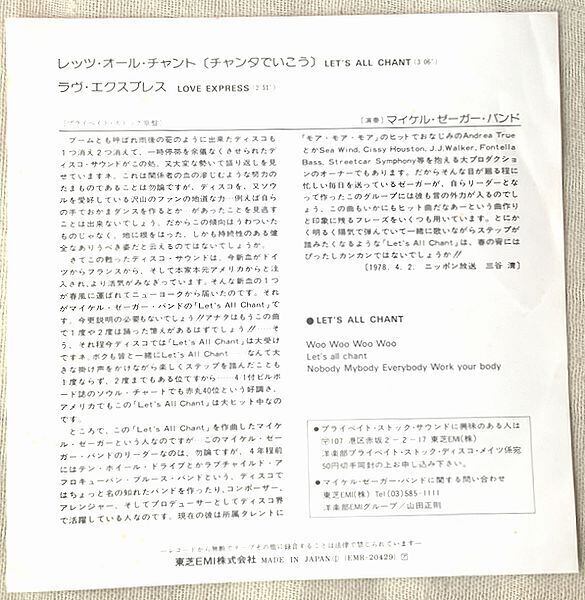 レッツ・オール・チャント〔チャンタでいこう〕 LET'S ALL CHANT (3 06")
ラヴ・エクスプレス LOVE EXPRESS (2 51")
〔演奏〕マイケル・ゼーガー・バンド
ブームとも呼ばれ雨後の筍のように出来たディスコも
1つ消え2つ消えて、一時停帯を余儀なくさせられたデ
ィスコ・サウンドがこの処、又大変な勢いで盛り返しを見
せていますネ。これは関係者の血の滲じむような努力の
たまものであることは勿論ですが、ディスコを、又ソウ
ルを愛好している沢山のファンの地道な力—例えば自ら
の手でおかまダンスを作るとか—があったことを見過す
ことは出来ないでしょう。だからこの傾向はうわついた
ものじゃなく、地に根をはった、しかも持続性のある健
全なありうべき姿だと云えるのではないでしょうか。
さてこの甦ったディスコ・サウンドは、今新血がドイ
ツからフランスから、そして本家本元アメリカからと注
入され、より活気がみなぎっています。そんな新血の1つ
が春風に運ばれてニューヨークから届いたのです。それ
がマイケル・ゼーガー・バンドの「Let's All Chant」で
す。今更説明の必要もないでしょう!!アナタはもうこの曲
で1度や2度は踊った憶えがあるはずでしょう!!……そ
う、それ程今ディスコでは「Let's All Chant」は大受け
ですネ。ボクも皆と一緒にLet's All Chant なんて大
きな掛け声をかけながら楽しくステップを踏んだことも
1度ならず、2度までもある位ですから……4.1付ビルボ
ード誌のソウル・チャートでも赤丸40位という好調さ、
アメリカでもこの「Let's All Chant」は大ヒット中なの
です。
ところで、この「Let's All Chant」を作曲したマイケ
ル・ゼーガーという人なのですが—このマイケル・ゼー
ガー・バンドのリーダーなのは、勿論ですが、4年程前
にはテン・ホイール・ドライブとかラブチャイルド・ア
フロキューバン・ブルース・バンドという、ディスコで
はちょっと名の知れたバンドを作ったり、コンポーザー、
アレンジャー、そしてプロデューサーとしてディスコ界
で活躍している人なのです。現在の彼は所属タレントに
「モア・モア・モア」のヒットでおなじみのAndrea True
とかSea Wind, Cissy Houston, J.J.Walker, Fontella
Bass, Streetcar Symphony等を抱える大プロダクショ
ンのオーナーでもあります。だからそんな目が廻る程に
忙しい毎日を送っているゼーガーが、自らリーダーとな
って作ったこのグループには彼も音の外力が入るのでし
ょう、この曲もいかにもヒット曲だなあーという曲作り
と印象に残るフレーズをいくつも用いています。とにか
く明るく陽気で弾んでいて一緒に歌いながらステップが
踏みたくなるような「Let's All Chant」は、春の宵には
ぴったしカンカンではないでしょうか!!
〔1978. 4. 2. ニッポン放送 三谷 清〕
●LET'S ALL CHANT
Woo Woo Woo Woo
Let's all chant
Nobody Mybody Everybody Work your body
●プライベイト・ストック・サウンドに興味のある人は
〒107 港区赤坂2−2−17 東芝EMI(株)
洋楽部プライベイト・ストック・ディスコ・メイツ係宛
50円切手同封の上お申し込み下さい。
●マイケル・ゼーガー・バンドに関する問い合わせ
東芝EMI(株) Tel (03) 585-1111
洋楽部EMIグループ/山田正則
—レコードから無断でテープその他に録音することは法律で禁じられています—
東芝EMI株式会社 MADE IN JAPAN (EMR-20429)